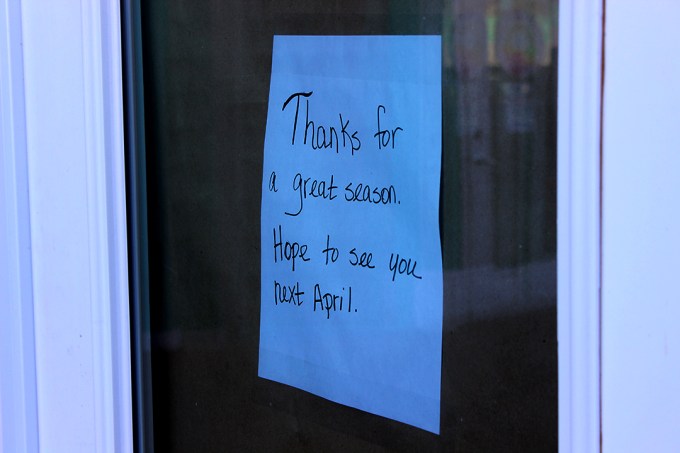 Thanks for
a great season.
Hope to see you
next April.